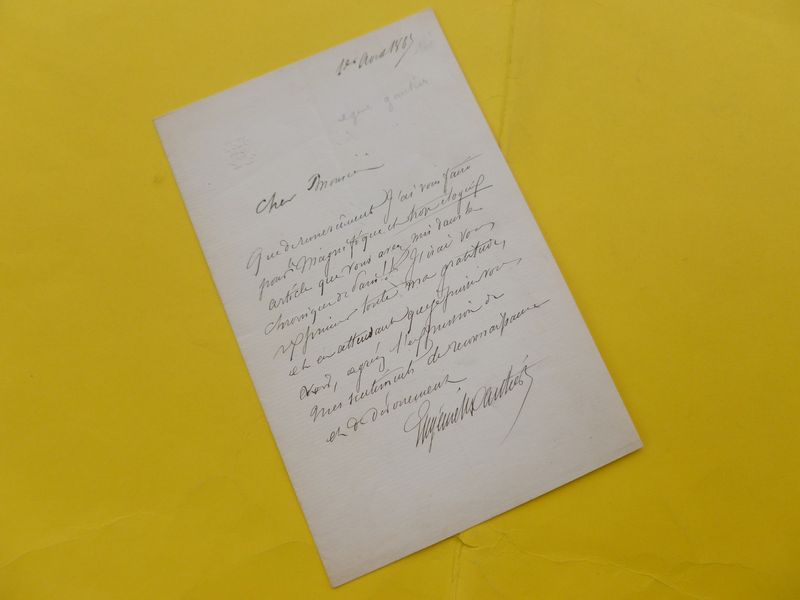 1er Avril 1865
eugene gautier
Cher Monsieur
Que de remerciements j'ai vous faire
pour le Magnifique et trop élogieux
article que vous avez mis dans la
chronique de Paris! J'irai vous
exprimer toute ma gratitude,
et en attendant que je puisse vous
voir, agréez l'expression de
mes sentiments de reconnaissance
et de dévouement
Eugène Gautier